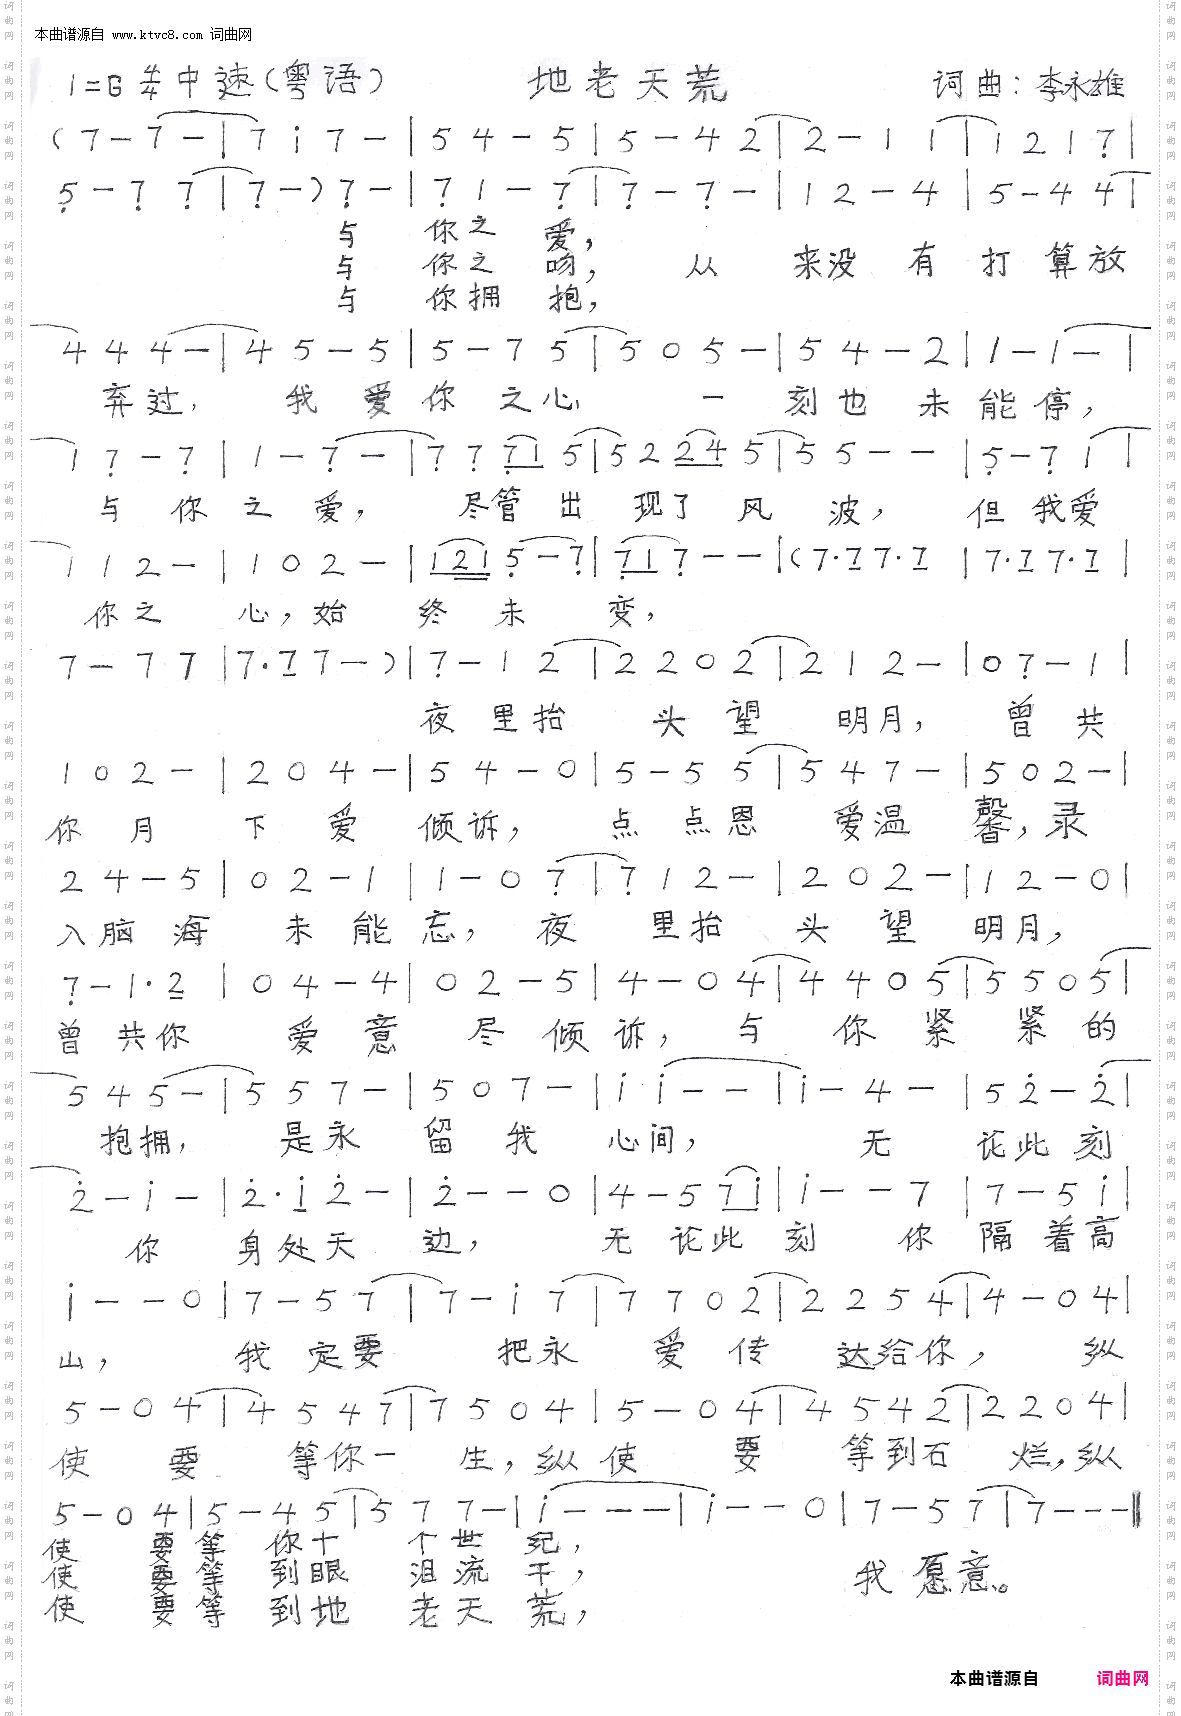 本曲谱源自 www.ktvc8.com 词曲网
1=G 4/4 中速(粤语) 地老天荒 词曲:李永雄
(7-7-|7i7-|54-5|5-42|2-11|1217|
5-77|7-)7-|71-7|7-7-|12-4|5-44|
与 你之 爱,
与 你之 吻, 从 来没 有 打 算 放
与 你拥 抱,
444-|45-5|5-75|505-|54-2|1-1-|
弃过, 我 爱 你 之心 一 刻也 未 能 停,
17-7|1-7-|77715|522245|55--|5-71|
与 你 之 爱, 尽管 出 现了 风 波, 但 我爱
112-|102-|1215-7|717--|(7·17·1|7·17·1|
你之 心,始 终 未 变,
7-77|7·17-)|7-12|2202|212-|07-1|
夜 里抬 头 望 明月, 曾 共
102-|204-|54-0|5-55|547-|502-|
你 月 下 爱 倾诉, 点 点恩 爱温 馨,录
24-5|02-1|1-07|712-|202-|12-0|
入脑 海 未 能 忘, 夜 里抬 头 望 明月,
7-1·2|04-4|02-5|4-04|4405|5505|
曾 共你 爱 意 尽 倾诉, 与 你 紧 紧 的
545-|557-|507-|ii--|i-4-|52-2|
抱拥, 是永 留 我 心间, 无 论此 刻
2-i-|2·i2-|2--0|4-57i|i--7|7-5i|
你 身处天 边, 无 论此 刻 你 隔 着高
i--0|7-57|7-i7|7702|2254|4-04|
山, 我 定要 把永 爱 传 达给你, 纵
5-04|4547|7504|5-04|4542|2204|
使 要 等你一 生,纵 使 要 等到石 烂,纵
5-04|5-45|577-|i---|i--0|7-57|7---‖
使 要 等 你十 个 世 纪,
使 要 等 到眼 泪 流 干, 我 愿意。
使 要 等 到地 老天 荒,
本曲谱源自 词曲网